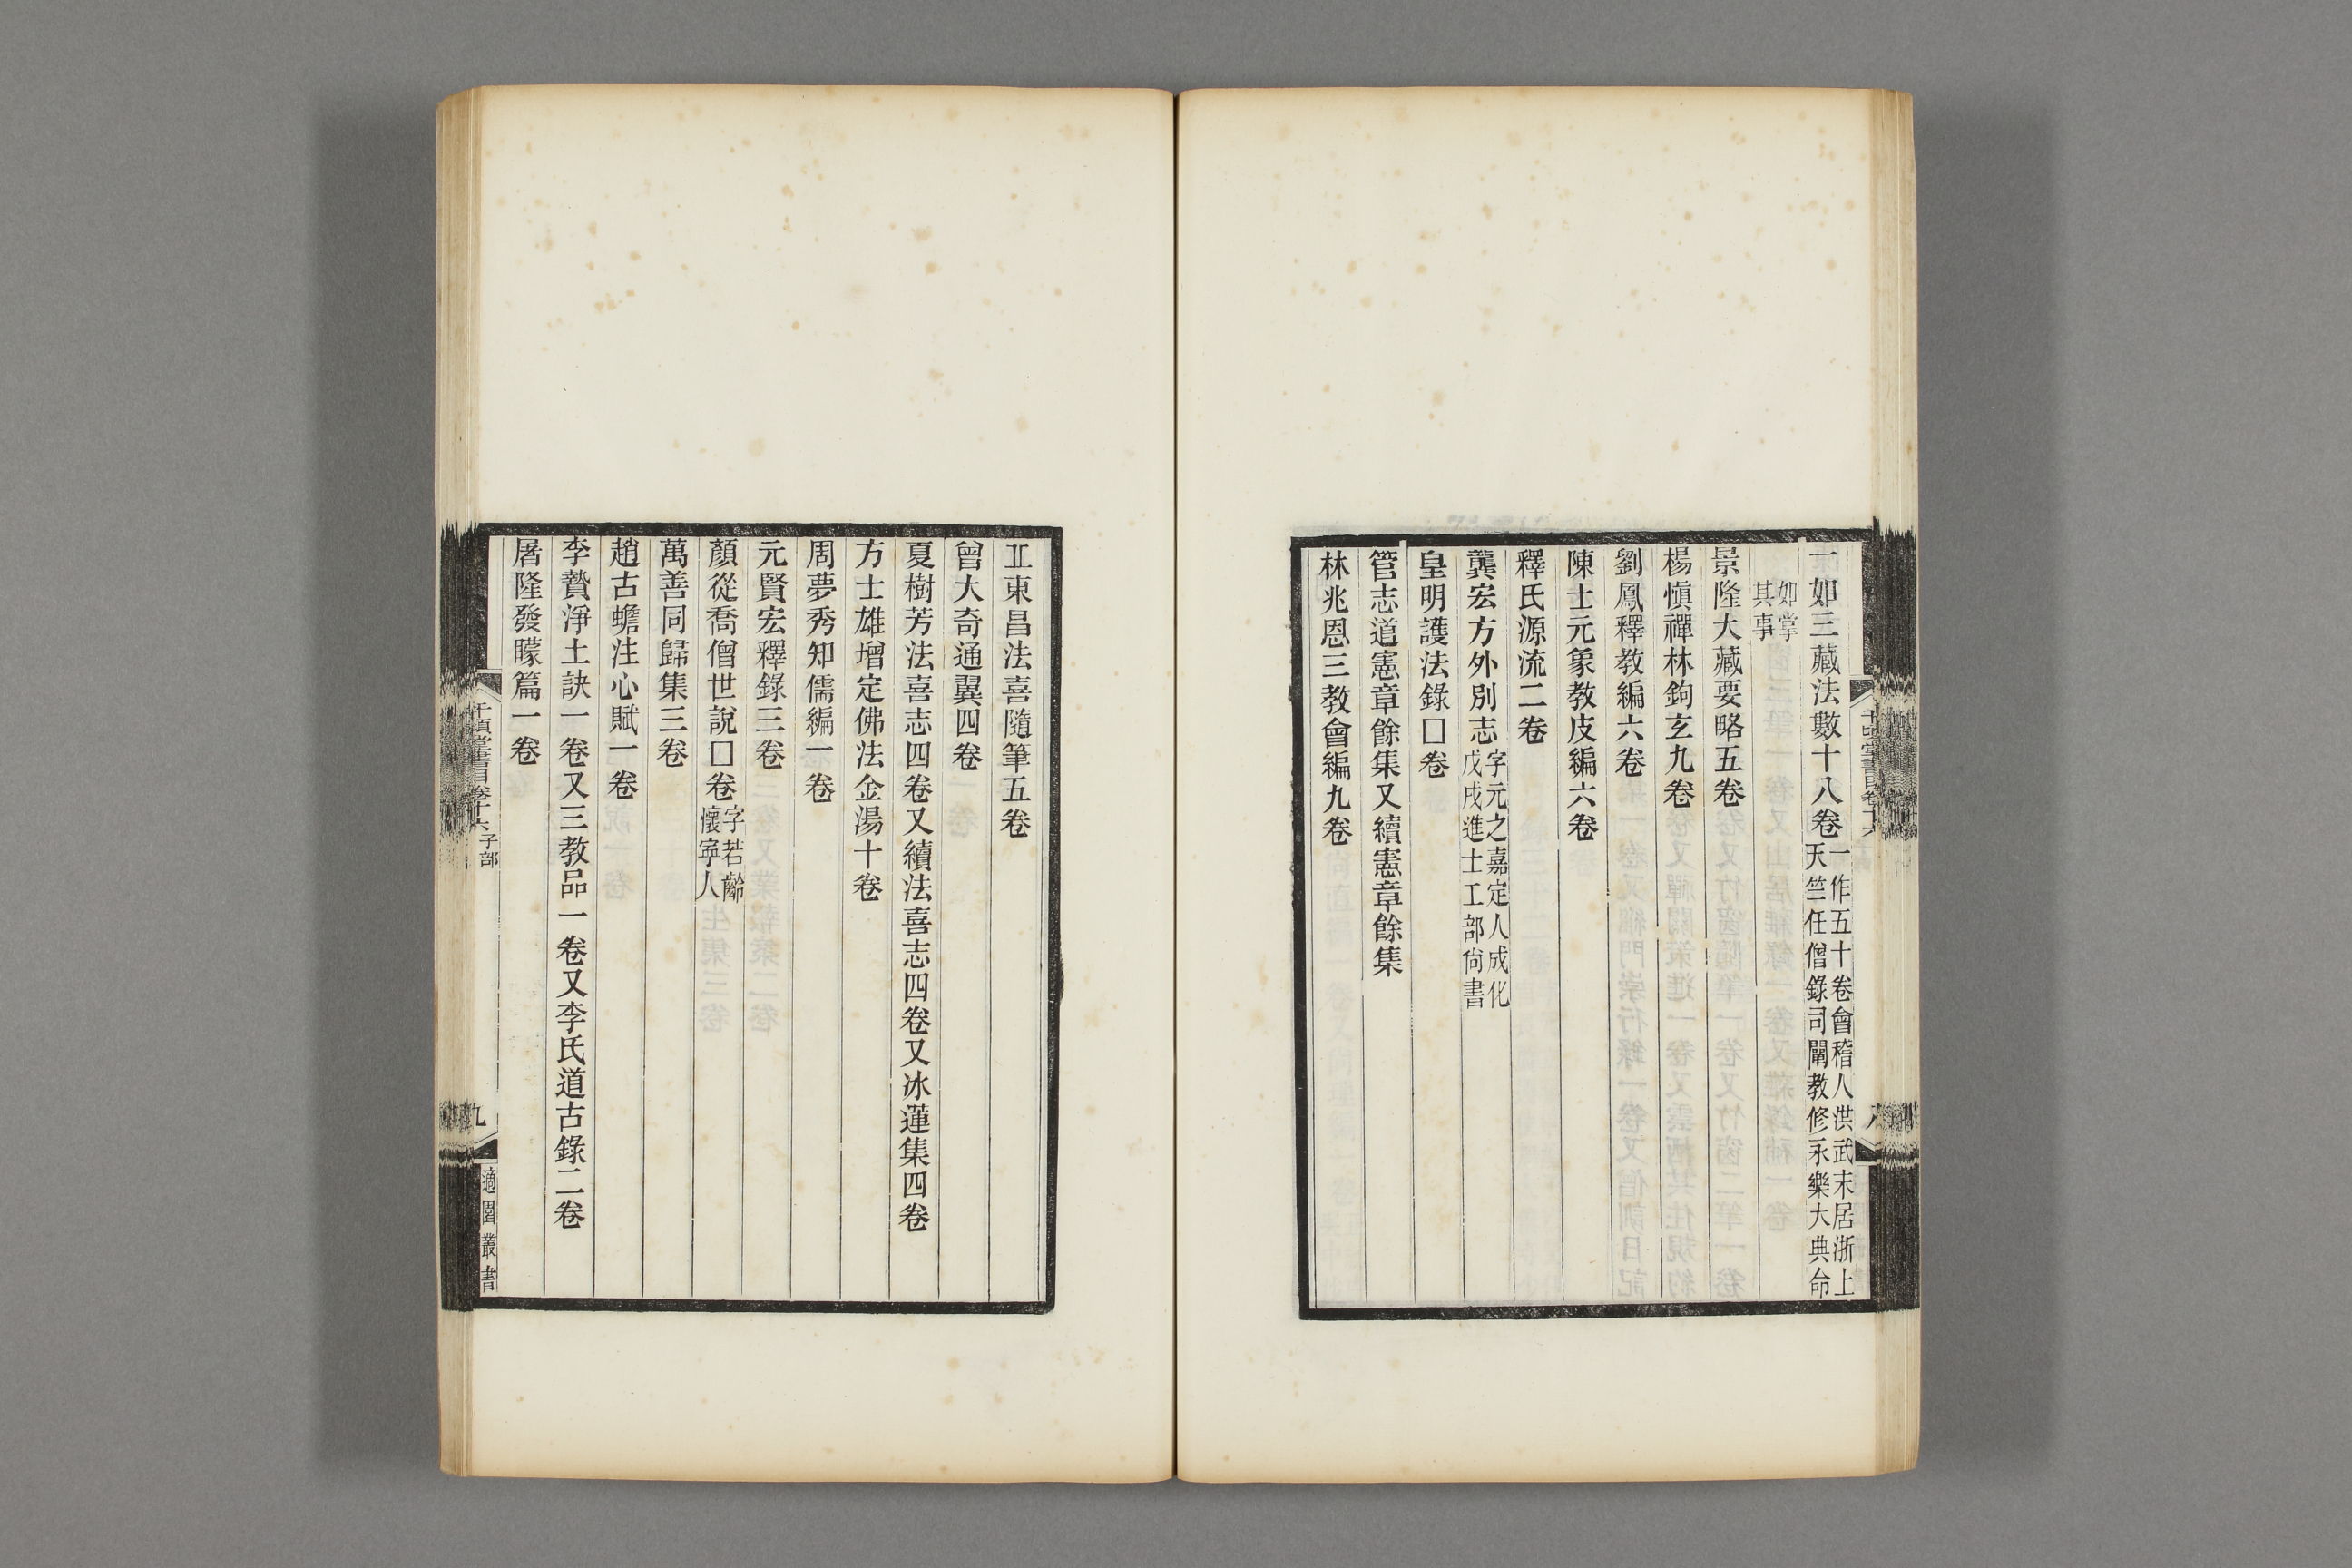 一如三藏法數十八卷一作五十卷會稽人洪武末居浙上天竺任僧錄司闡教修永樂大典命
如掌其事
景隆大藏要略五卷
楊愼禪林鉤玄九卷
劉鳳釋教編六卷
陳士元象教皮編六卷
釋氏源流二卷
龔宏方外別志字元之嘉定人成化戊戌進士工部尙書
皇明護法錄囗卷
管志道憲章餘集又續憲章餘集
林兆恩三教會編九卷
千頃堂書目卷十六
八
㐀東昌法喜隨筆五卷
曾大奇通翼四卷
夏樹芳法喜志四卷又續法喜志四卷又冰蓮集四卷
方士雄增定佛法金湯十卷
周夢秀知儒編一卷
元賢宏釋錄三卷
顏從喬僧世說囗卷字若齡懷寧人
萬善同歸集三卷
趙古蟾注心賦一卷
李贄淨土訣一卷又三教品一卷又李氏道古錄二卷
屠隆發矇篇一卷
千頃堂書目卷十六 子部
九
適園叢書